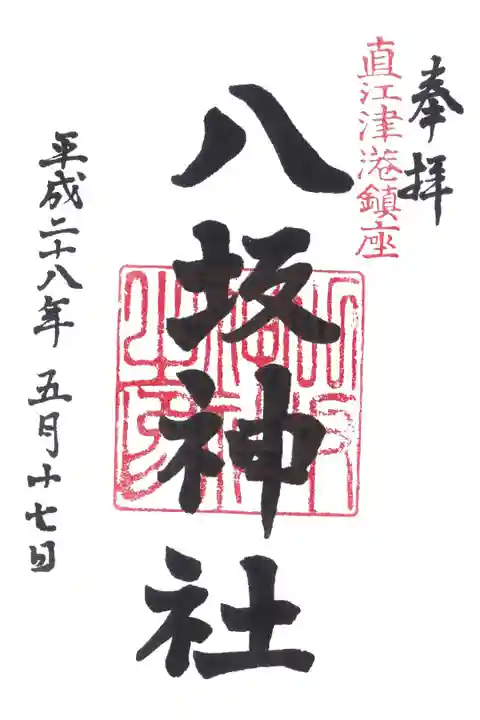 奉拝
直江津港鎮座
八坂神社
平成二十八年五月十七日